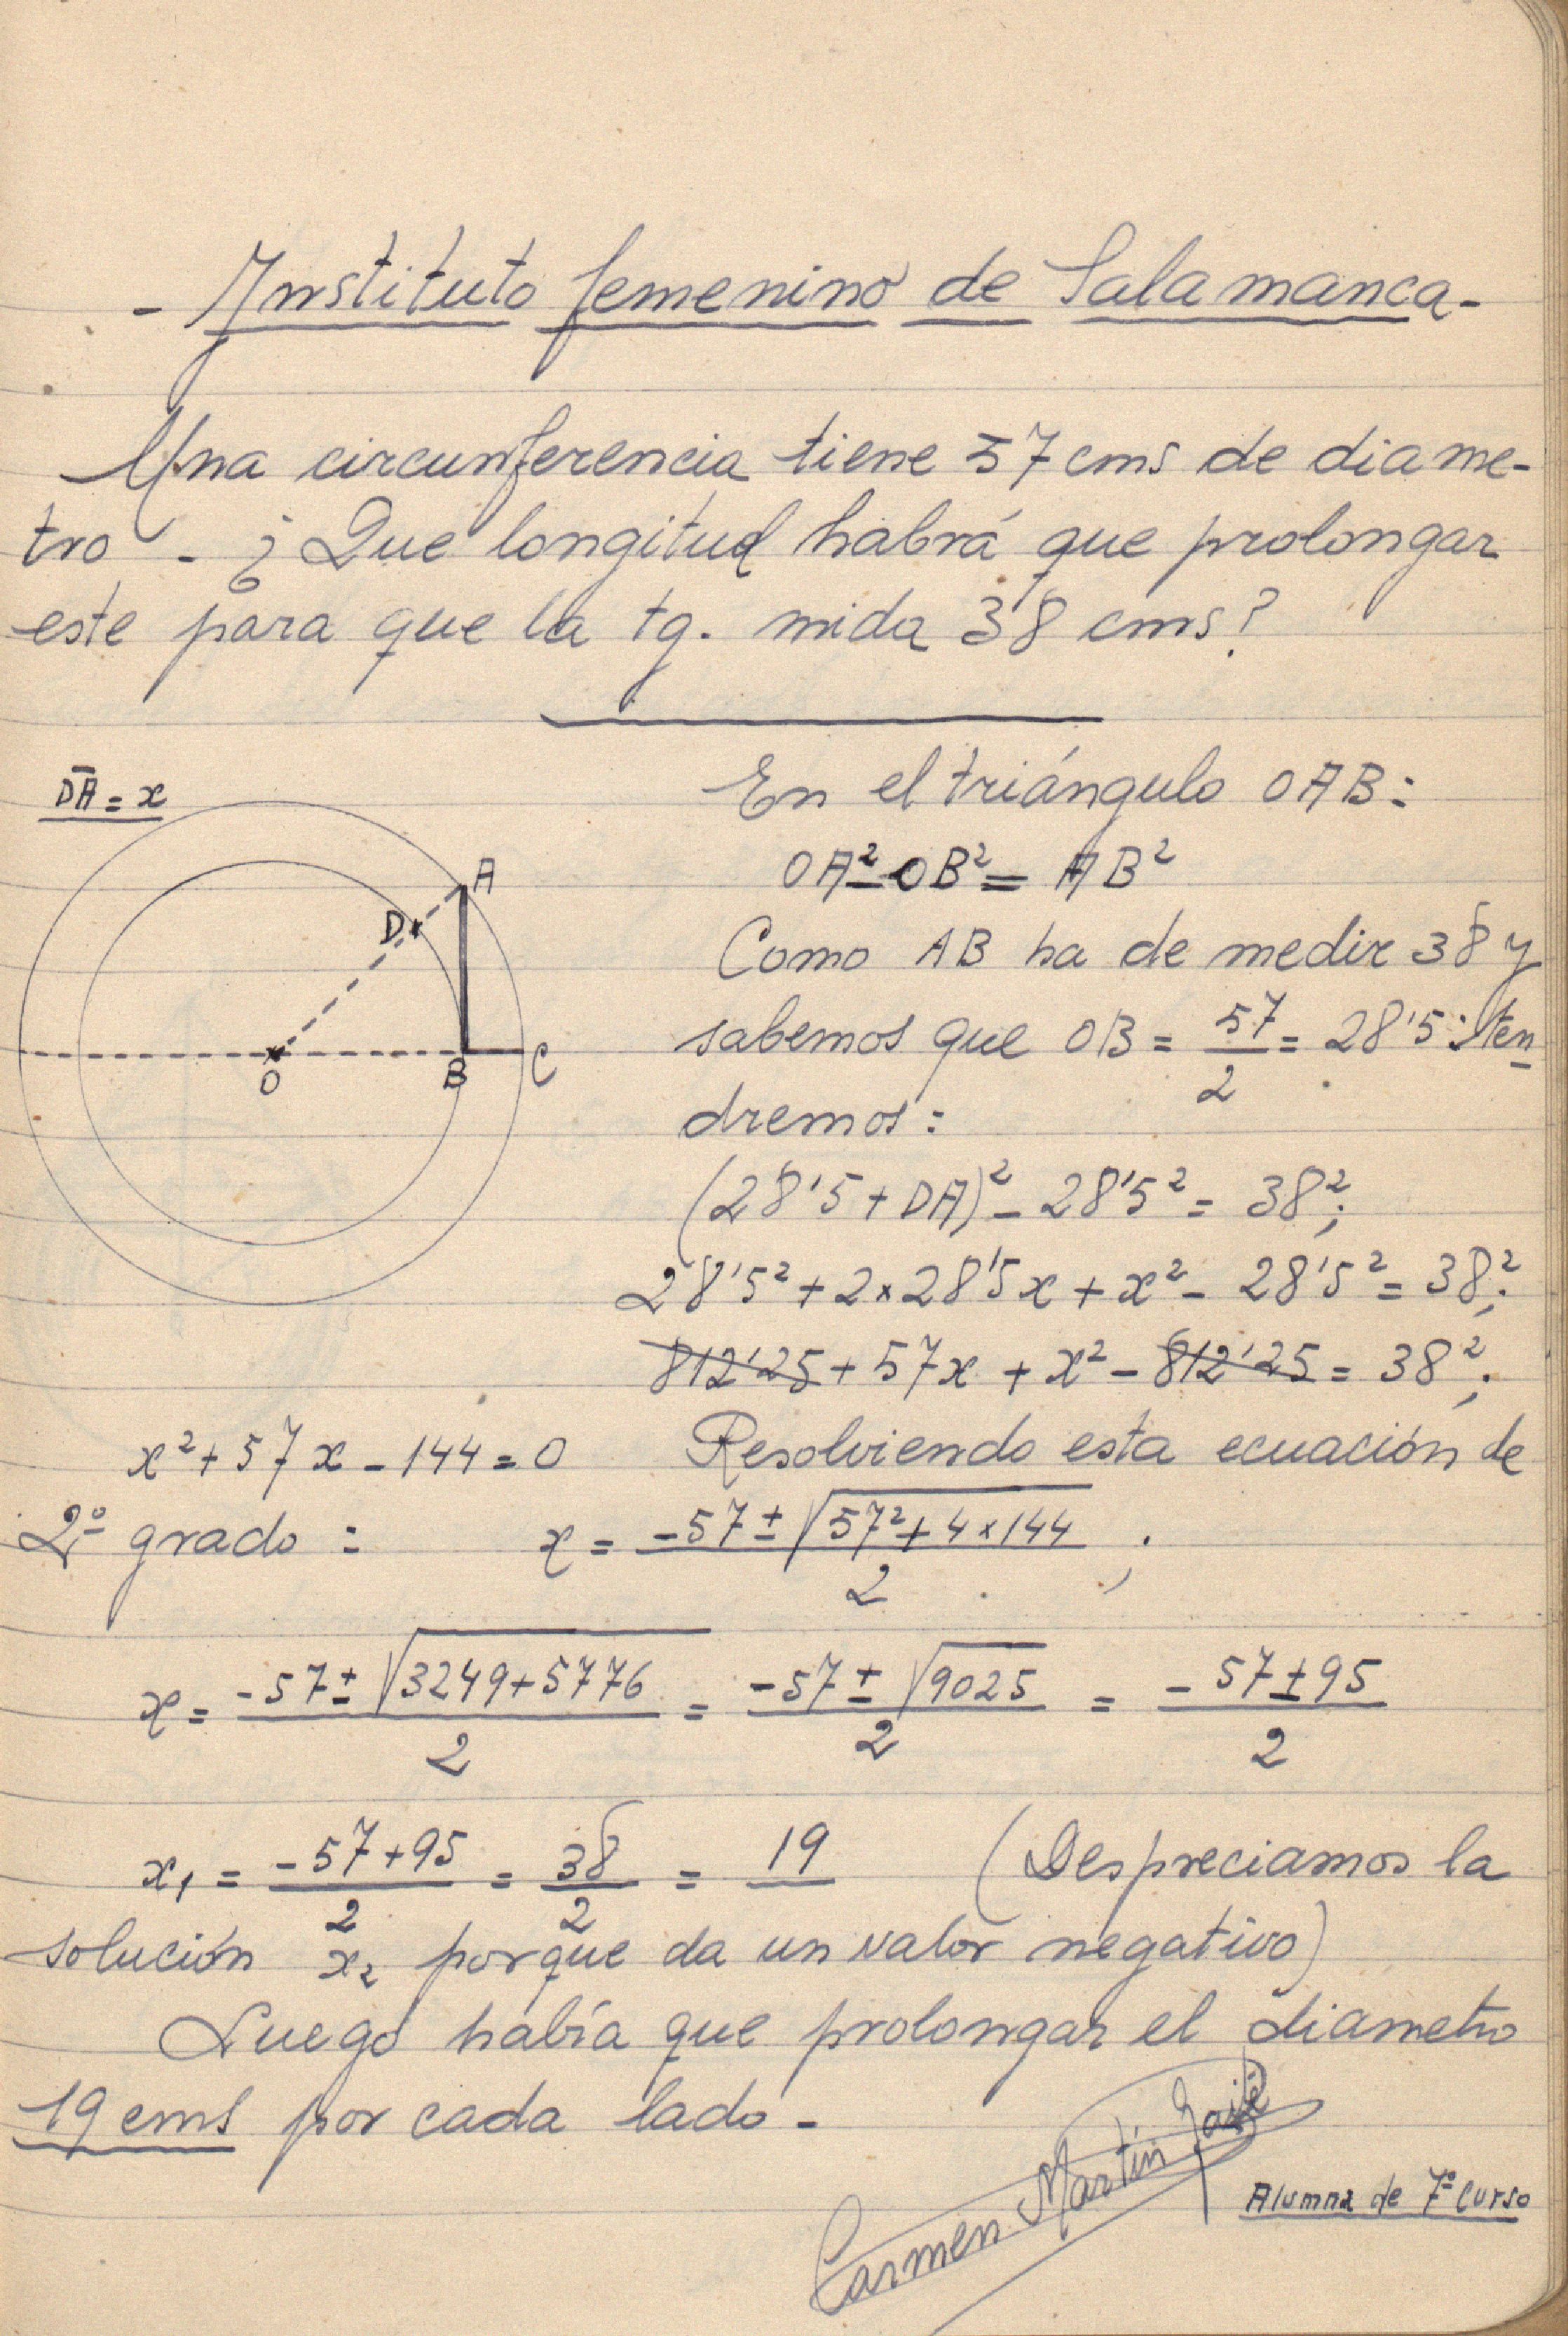 - Instituto femenino de Salamanca -
Una circunferencia tiene 57 cms de diame-
tro - ¿Que longitud habrá que prolongar
este para que la tg. mida 38 cms?
DA = x
A
D
O
B
C
En el triángulo OAB:
OA² - OB² = AB²
Como AB ha de medir 38 y
sabemos que OB = 57/2 = 28'5 : ten
dremos:
(28'5 + DA)² - 28'5² = 38²;
28'5² + 2 × 28'5x + x² - 28'5² = 38²;
812'25 + 57x + x² - 812'25 = 38²;
x² + 57x - 144 = 0 Resolviendo esta ecuación de
2º grado : x = (-57 ± √(57² + 4 × 144))/2 ;
x = (-57 ± √(3249 + 5776))/2 = (-57 ± √9025)/2 = (-57 ± 95)/2
x₁ = (-57 + 95)/2 = 38/2 = 19 (Despreciamos la
solución x₂ porque da un valor negativo)
Luego había que prolongar el diametro
19 cms por cada lado -
Carmen Martín
Alumna de 7º curso